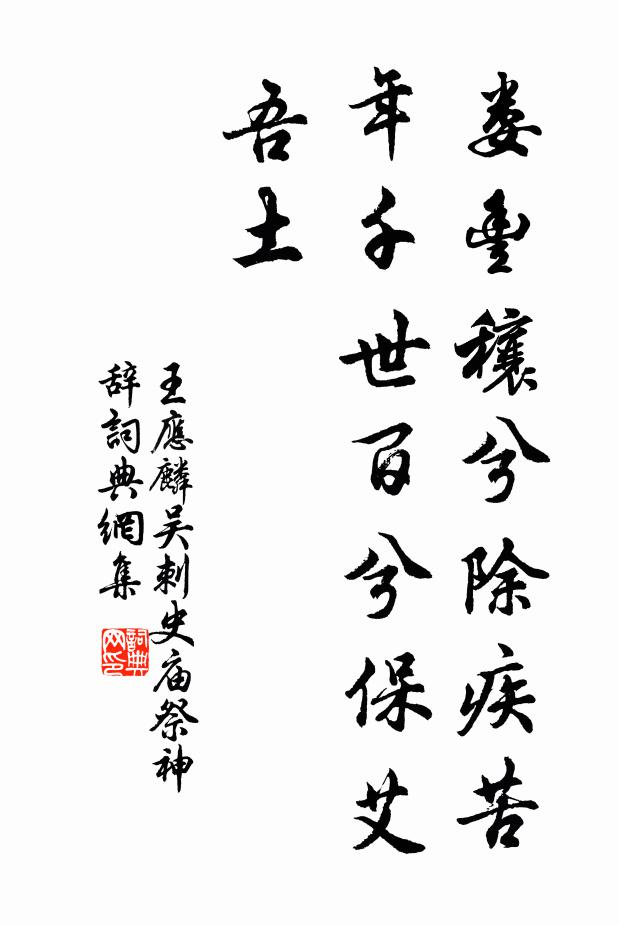 娄豐穰兮除疾苦
年千世百兮保艾
吾土
王應麟吴刺史庙祭神
辞詞典網集
詞典网印